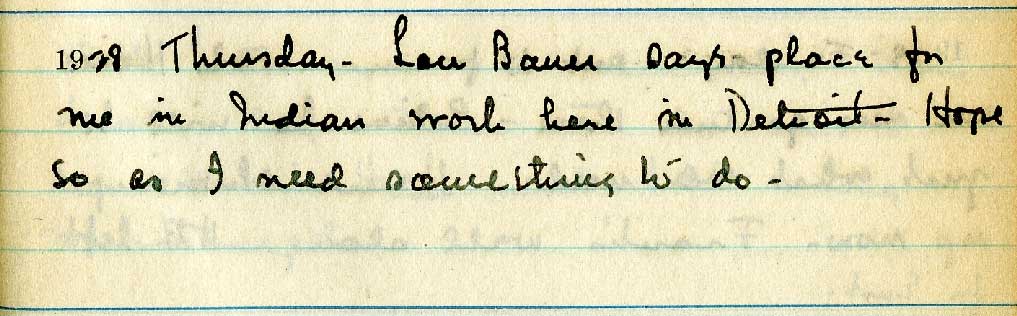 1938 Thursday- Lou Bauer says place for
me in Indian work here in Detroit- Hope
so as I need something to do-